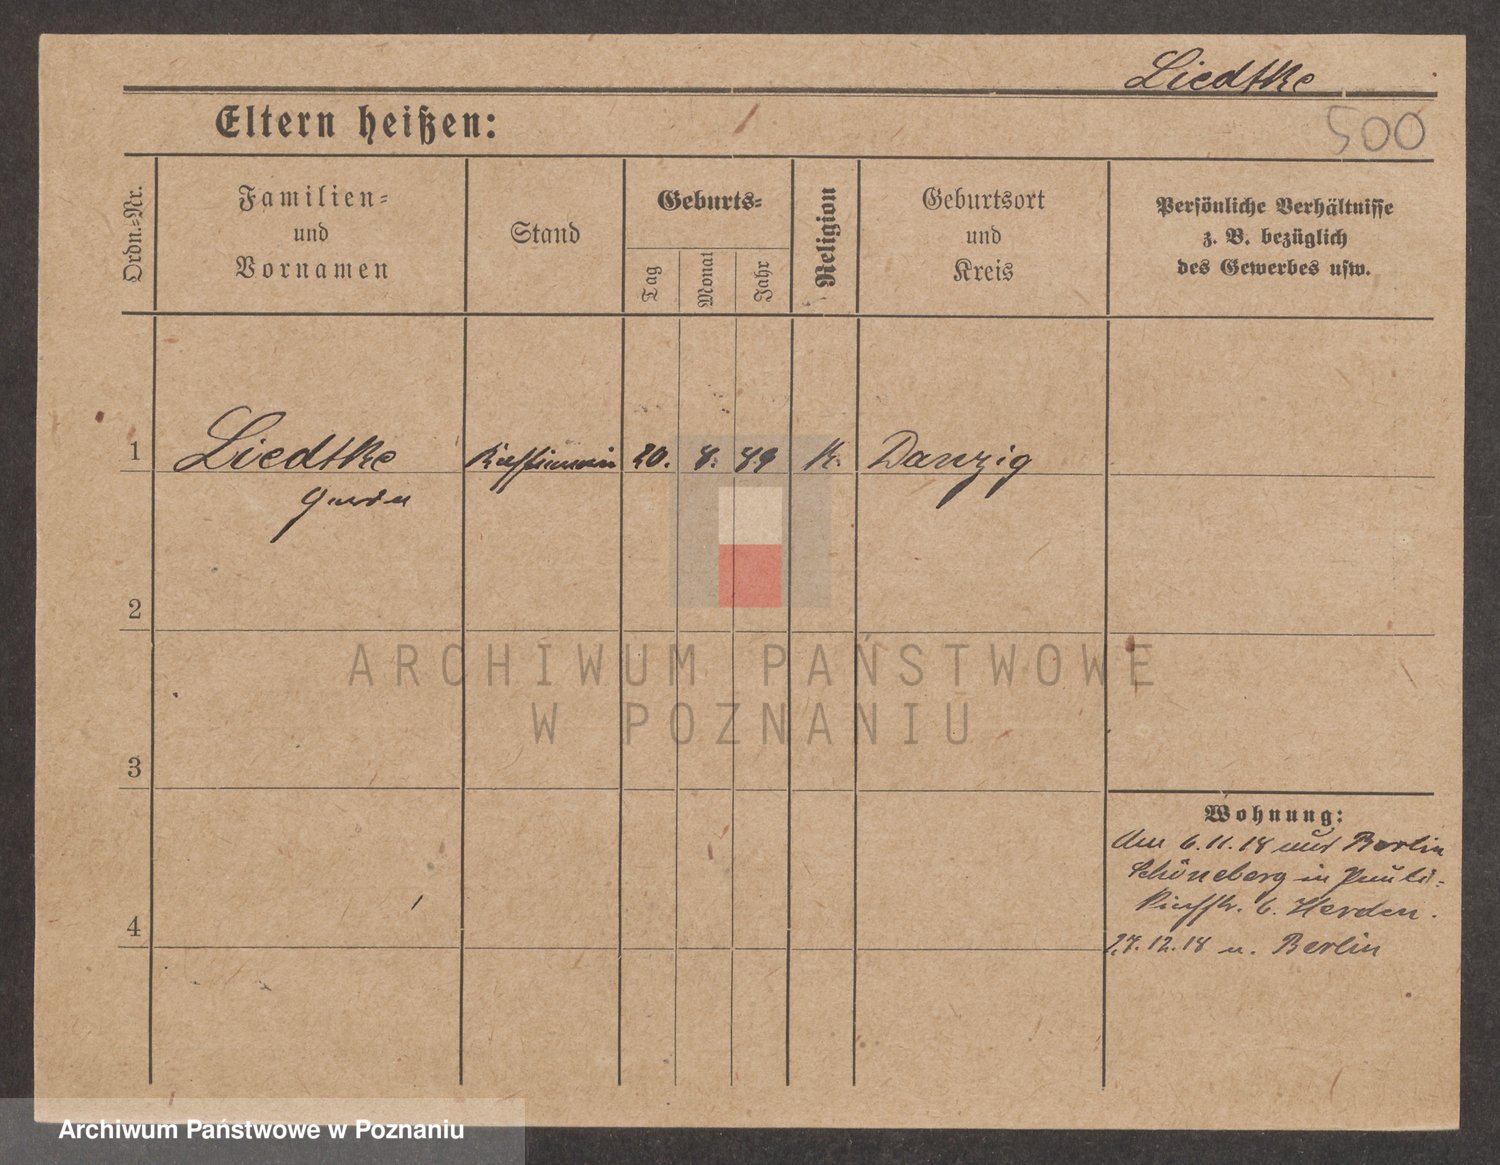 Liedtke
Eltern heißen:
500
Ordn.-Nr.
Familien-
und
Vornamen
Stand
Geburts-
Tag
Monat
Jahr
Religion
Geburtsort
und
Kreis
Persönliche Verhältnisse
z. B. bezüglich
des Gewerbes usw.
1
Liedtke
20. 8. 89
K.
Danzig
2
ARCHIWUM PAŃSTWOWE
W POZNANIU
3
Wohnung:
Am 6.11.18 Berlin
Schöneberg in
b. Herden.
27.12.18 n. Berlin
4
Archiwum Państwowe w Poznaniu